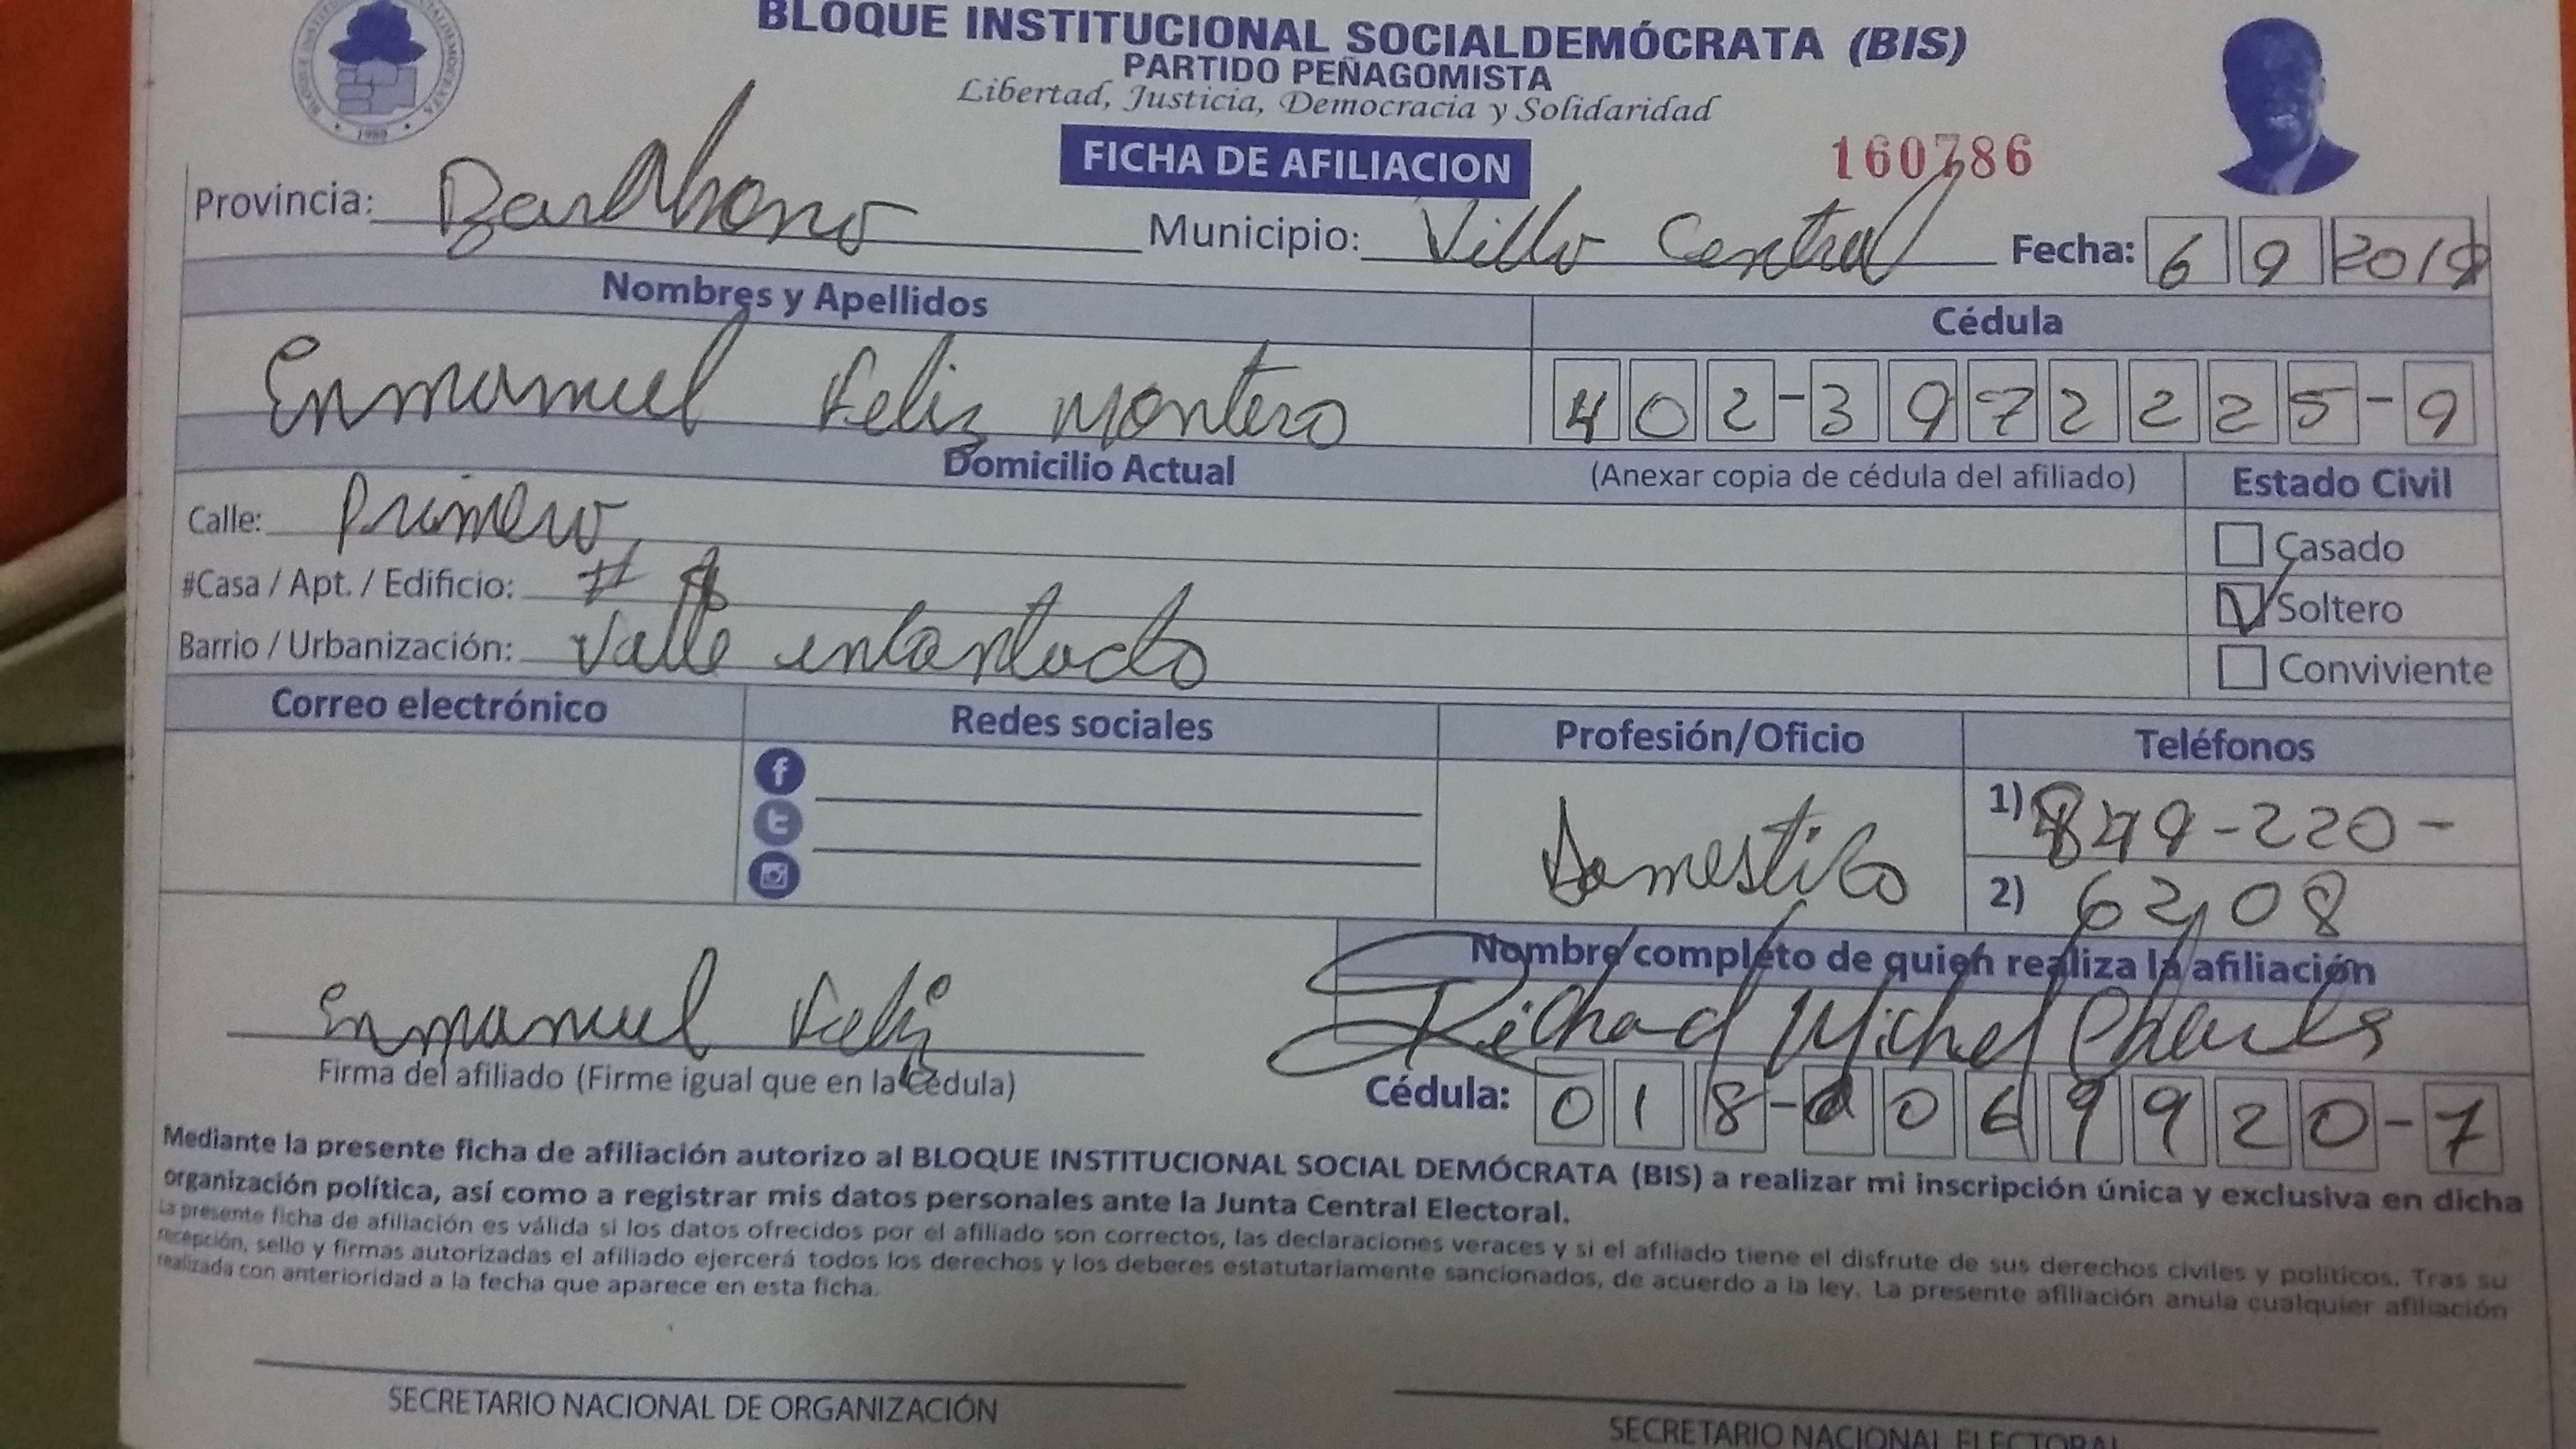 BLOQUE INSTITUCIONAL SOCIALDEMÓCRATA (BIS)
PARTIDO PEÑAGOMISTA
Libertad, Justicia, Democracia y Solidaridad
FICHA DE AFILIACION
160786
Provincia: Barahona Municipio: Villa Central Fecha: 6 9 2019
Nombres y Apellidos Cédula
Enmanuel Feliz Montero 402-3972225-9
Domicilio Actual (Anexar copia de cédula del afiliado) Estado Civil
Calle: Primera Casado
#Casa / Apt. / Edificio: # Soltero
Barrio / Urbanización: Valle encantado Conviviente
Correo electrónico Redes sociales Profesión/Oficio Teléfonos
Domestico 1) 849-220-
2) 6208
Nombre completo de quien realiza la afiliación
Enmanuel Feliz Richad Michel Charles
Firma del afiliado (Firme igual que en la Cédula) Cédula: 018-0069920-7
Mediante la presente ficha de afiliación autorizo al BLOQUE INSTITUCIONAL SOCIAL DEMÓCRATA (BIS) a realizar mi inscripción única y exclusiva en dicha
organización política, así como a registrar mis datos personales ante la Junta Central Electoral.
La presente ficha de afiliación es válida si los datos ofrecidos por el afiliado son correctos, las declaraciones veraces y si el afiliado tiene el disfrute de sus derechos civiles y políticos. Tras su
recepción, sello y firmas autorizadas el afiliado ejercerá todos los derechos y los deberes estatutariamente sancionados, de acuerdo a la ley. La presente afiliación anula cualquier afiliación
realizada con anterioridad a la fecha que aparece en esta ficha.
SECRETARIO NACIONAL DE ORGANIZACIÓN
SECRETARIO NACIONAL ELECTORAL